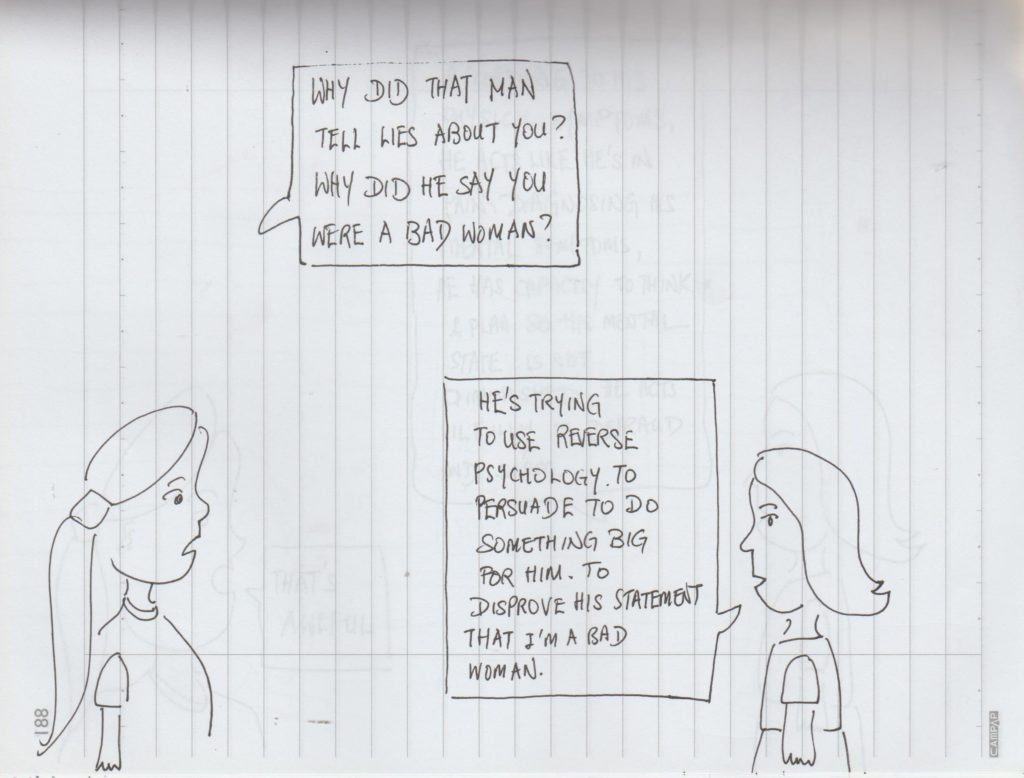 WHY DID THAT MAN
TELL LIES ABOUT YOU?
WHY DID HE SAY YOU
WERE A BAD WOMAN?
HE'S TRYING
TO USE REVERSE
PSYCHOLOGY. TO
PERSUADE TO DO
SOMETHING BIG
FOR HIM. TO
DISPROVE HIS STATEMENT
THAT I'M A BAD
WOMAN.
THAT'S
AWFUL
188
CAMPAP